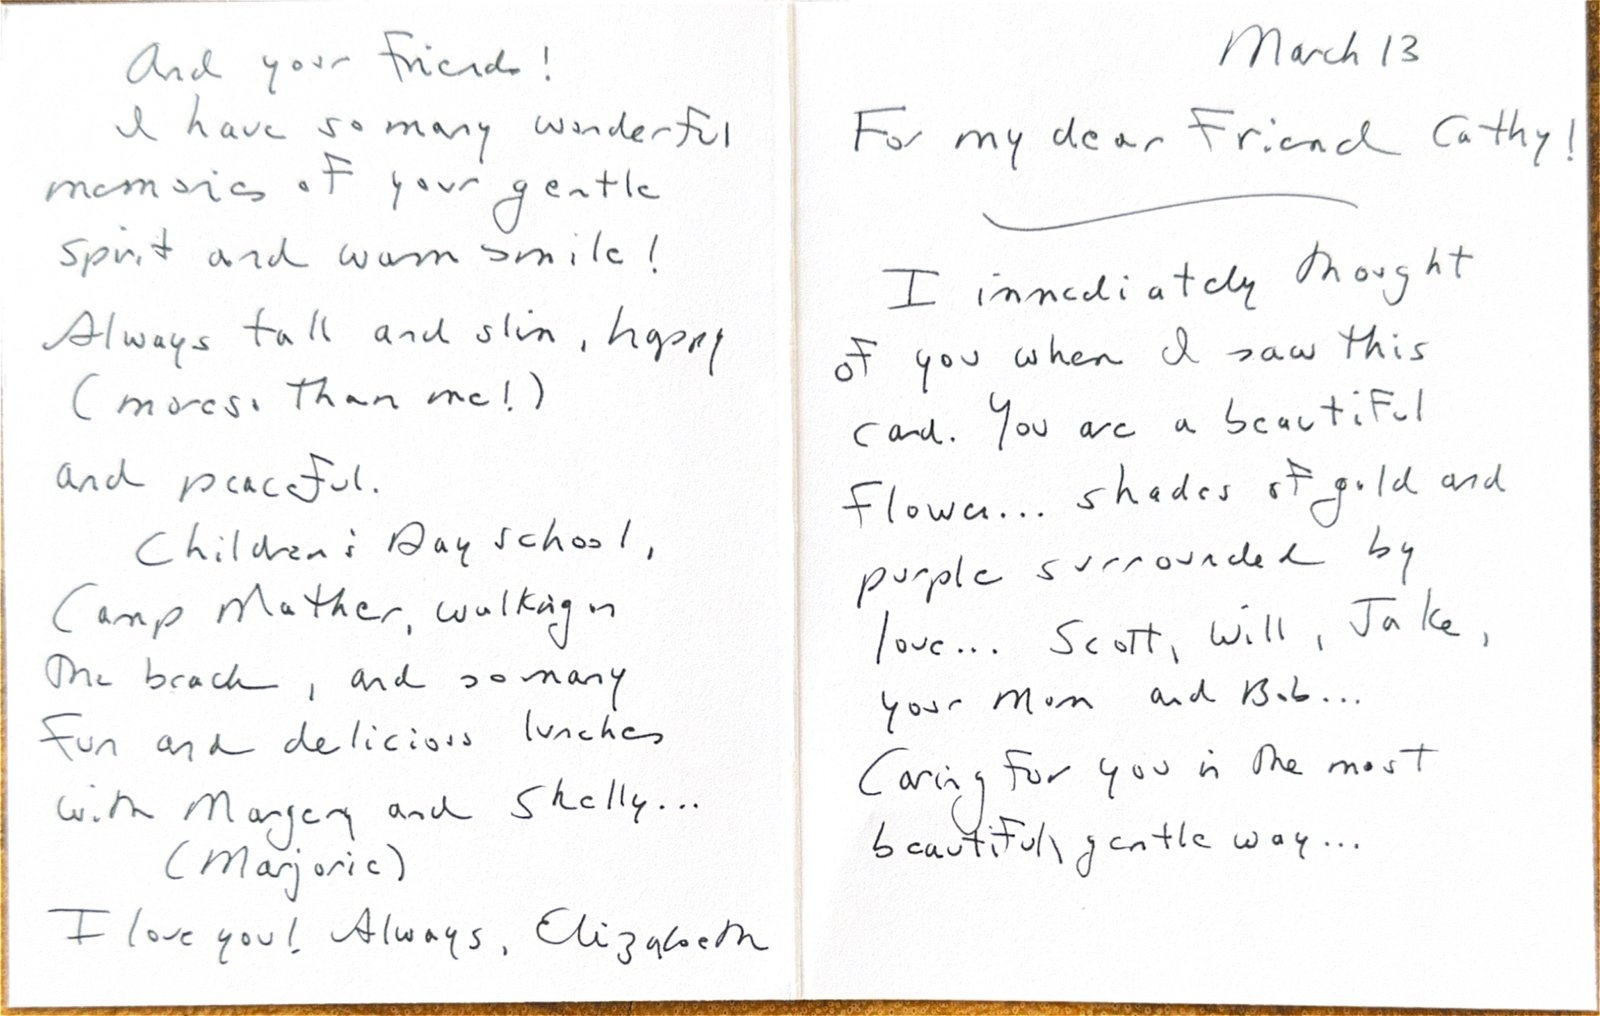 March 13
For my dear Friend Cathy!
I immediately thought
of you when I saw this
card. You are a beautiful
Flower... shades of gold and
purple surrounded by
love... Scott, Will, Jake,
your Mom and Bob...
Caring for you in the most
beautiful, gentle way...
And your Friends!
I have so many wonderful
memories of your gentle
spirit and warm smile!
Always tall and slim, happy
(moreso than me!)
and peaceful.
Children's Day School,
Camp Mather, walking on
the beach, and so many
Fun and delicious lunches
with Margery and Shelly...
(Marjorie)
I love you! Always, Elizabeth